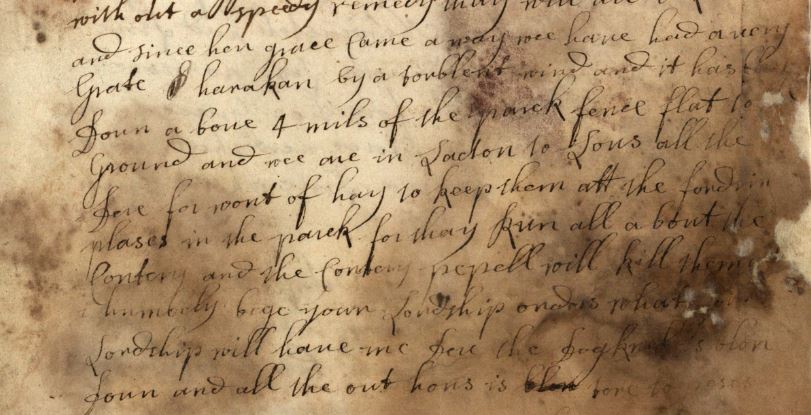 with out a speedy remedy thay will are
and since her grace Came a way wee have had a very
Grate harakan by a torblent wind and it has
Doun a bove 4 mils of the parck fence flat to
Ground and wee are in Dacton to Lous all the
Dere for wont of hay to keep them att the fondrin
plases in the parck for thay Run all a bout the
Contery and the Contery pepell will kill them
i humbely bege your Lordship orders what
Lordship will have me Dow the Dogk blon
Doun and all the out hous is blon tore to peses